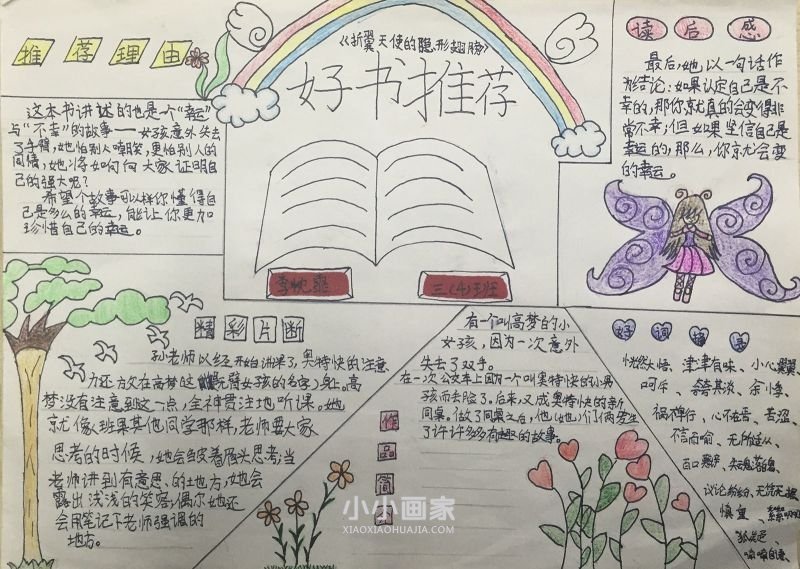 《折翼天使的隐形翅膀》
好书推荐
推荐理由
这本书讲述的也是一个“幸运”
与“不幸”的故事——女孩意外失去
了手臂,她怕别人嘲笑,更怕别人的
同情,她将如何向大家证明自
己的强大呢?
希望个故事可以样你懂得自
己是多么的幸运,能让你更加
珍惜自己的幸运。
读后感
最后,她,以一句话作
为结论:如果认定自己是不
幸的,那你就真的会变得非
常不幸;但如果坚信自己是
幸运的,那么,你就会变
的幸运。
三(4)班
精彩片断
孙老师以经开始讲课了,奥特快的注意
力还放在高梦这
无臂女孩的名字)身上。高
梦没有注意到这一点,全神贯注地听课。她
就像班里其他同学那样,老师要大家
思考的时候,她会皱着眉头思考;当
老师讲到有意思的地方,她会
露出浅浅的笑容;偶尔她还
会用笔记下老师强调的
地方。
作品简
有一个叫高梦的小
女孩,因为一次意外
失去了双手。
在一次公交车上因为一个叫奥特快的小男
孩而丢脸了。后来,又成奥特快的新
同桌。做了同桌之后,他(她)们俩发生
了许许多多有趣的故事。
好词摘
恍然大悟、津津有味、小心翼翼、
祸不单行、心不在焉、苦涩、
不言而喻、无所适从、
议论纷纷、
慎重、
小小画家
XIAOXIAOHUAJIA.COM